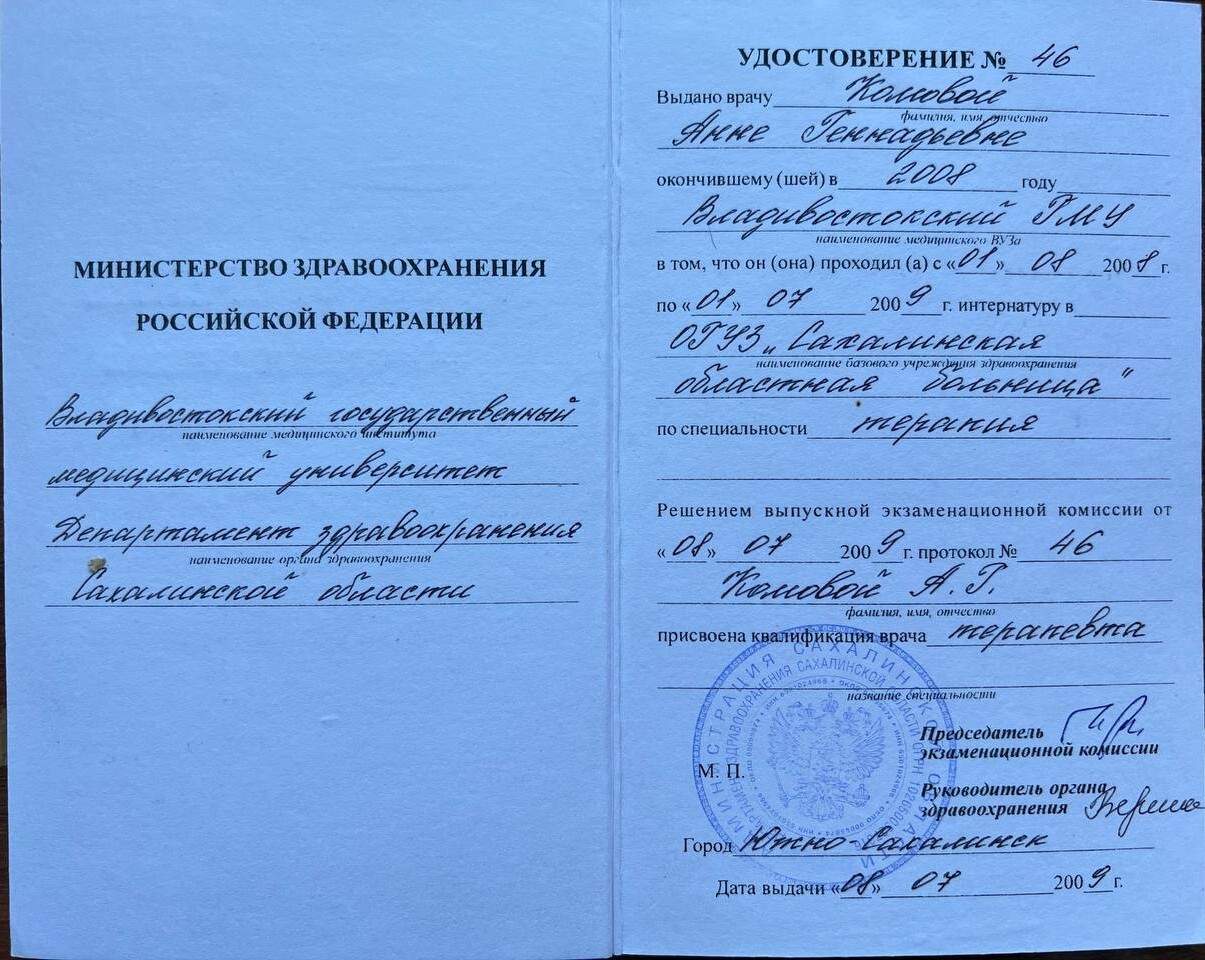 МИНИСТЕРСТВО ЗДРАВООХРАНЕНИЯ
РОССИЙСКОЙ ФЕДЕРАЦИИ
Владивостокский государственный
наименование медицинского института
медицинский университет
Департамент здравоохранения
наименование органа здравоохранения
Сахалинской области
УДОСТОВЕРЕНИЕ № 46
Выдано врачу Комовой
фамилия, имя, отчество
Анне Геннадьевне
окончившему (шей) в 2008 году
Владивостокский ГМУ
наименование медицинского ВУЗа
в том, что он (она) проходил (а) с «01» 08 2008 г.
по «01» 07 2009 г. интернатуру в
ОГУЗ „Сахалинская
наименование базового учреждения здравоохранения
областная больница"
по специальности терапия
Решением выпускной экзаменационной комиссии от
«08» 07 2009 г. протокол № 46
Комовой А.Г.
фамилия, имя, отчество
присвоена квалификация врача терапевта
название специальности
Председатель
экзаменационной комиссии
М. П.
Руководитель органа
здравоохранения
Город Южно-Сахалинск
Дата выдачи «08» 07 2009 г.
АДМИНИСТРАЦИЯ САХАЛИНСКОЙ ОБЛАСТИ
ДЕПАРТАМЕНТ ЗДРАВООХРАНЕНИЯ САХАЛИНСКОЙ ОБЛАСТИ ОГРН